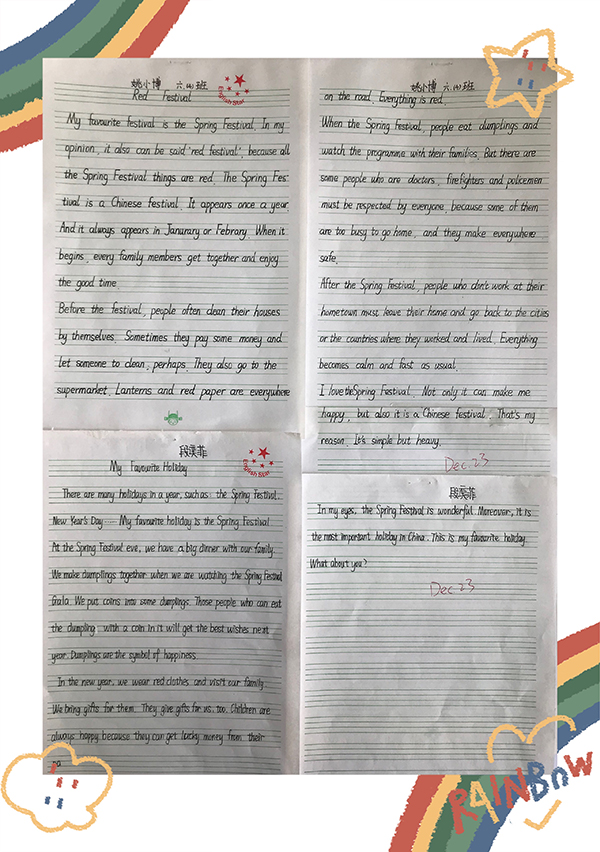 姚小博 六(4)班
Red Festival
English Star
My favourite festival is the Spring Festival. In my
opinion, it also can be said "red festival", because all
the Spring Festival things are red. The Spring Fes-
tival is a Chinese festival. It appears once a year.
And it always appears in Janurary or Febrary. When it
begins, every family members get together and enjoy
the good time.
Before the festival, people often clean their houses
by themselves. Sometimes they pay some money and
let someone to clean, perhaps. They also go to the
supermarket. Lanterns and red paper are everywhere
姚小博 六(4)班
on the road. Everything is red.
When the Spring Festival, people eat dumplings and
watch the programme with their families. But there are
some people who are doctors, firefighters and policemen
must be respected by everyone, because some of them
are too busy to go home, and they make everywhere
safe.
After the Spring Festival, people who don't work at their
hometown must leave their home and go back to the cities
or the countries where they worked and lived. Everything
becomes calm and fast as usual.
I love the Spring Festival. Not only it can make me
happy, but also it is a Chinese festival. That's my
reason. It's simple but heavy.
Dec 23
段奕菲
My Favourite Holiday
English Star
There are many holidays in a year, such as: the Spring Festival,
New Year's Day ...... My favourite holiday is the Spring Festival.
At the Spring Festival eve, we have a big dinner with our family.
We make dumplings together when we are watching the Spring Festival
Gala. We put coins into some dumplings. Those people who can eat
the dumpling with a coin in it will get the best wishes next
year. Dumplings are the symbol of happiness.
In the new year, we wear red clothes and visit our family.
We bring gifts for them. They give gifts for us, too. Children are
always happy because they can get lucky money from their
段奕菲
In my eyes, the Spring Festival is wonderful. Moreover, it is
the most important holiday in China. This is my favourite holiday.
What about you?
Dec 23
RAINBOW